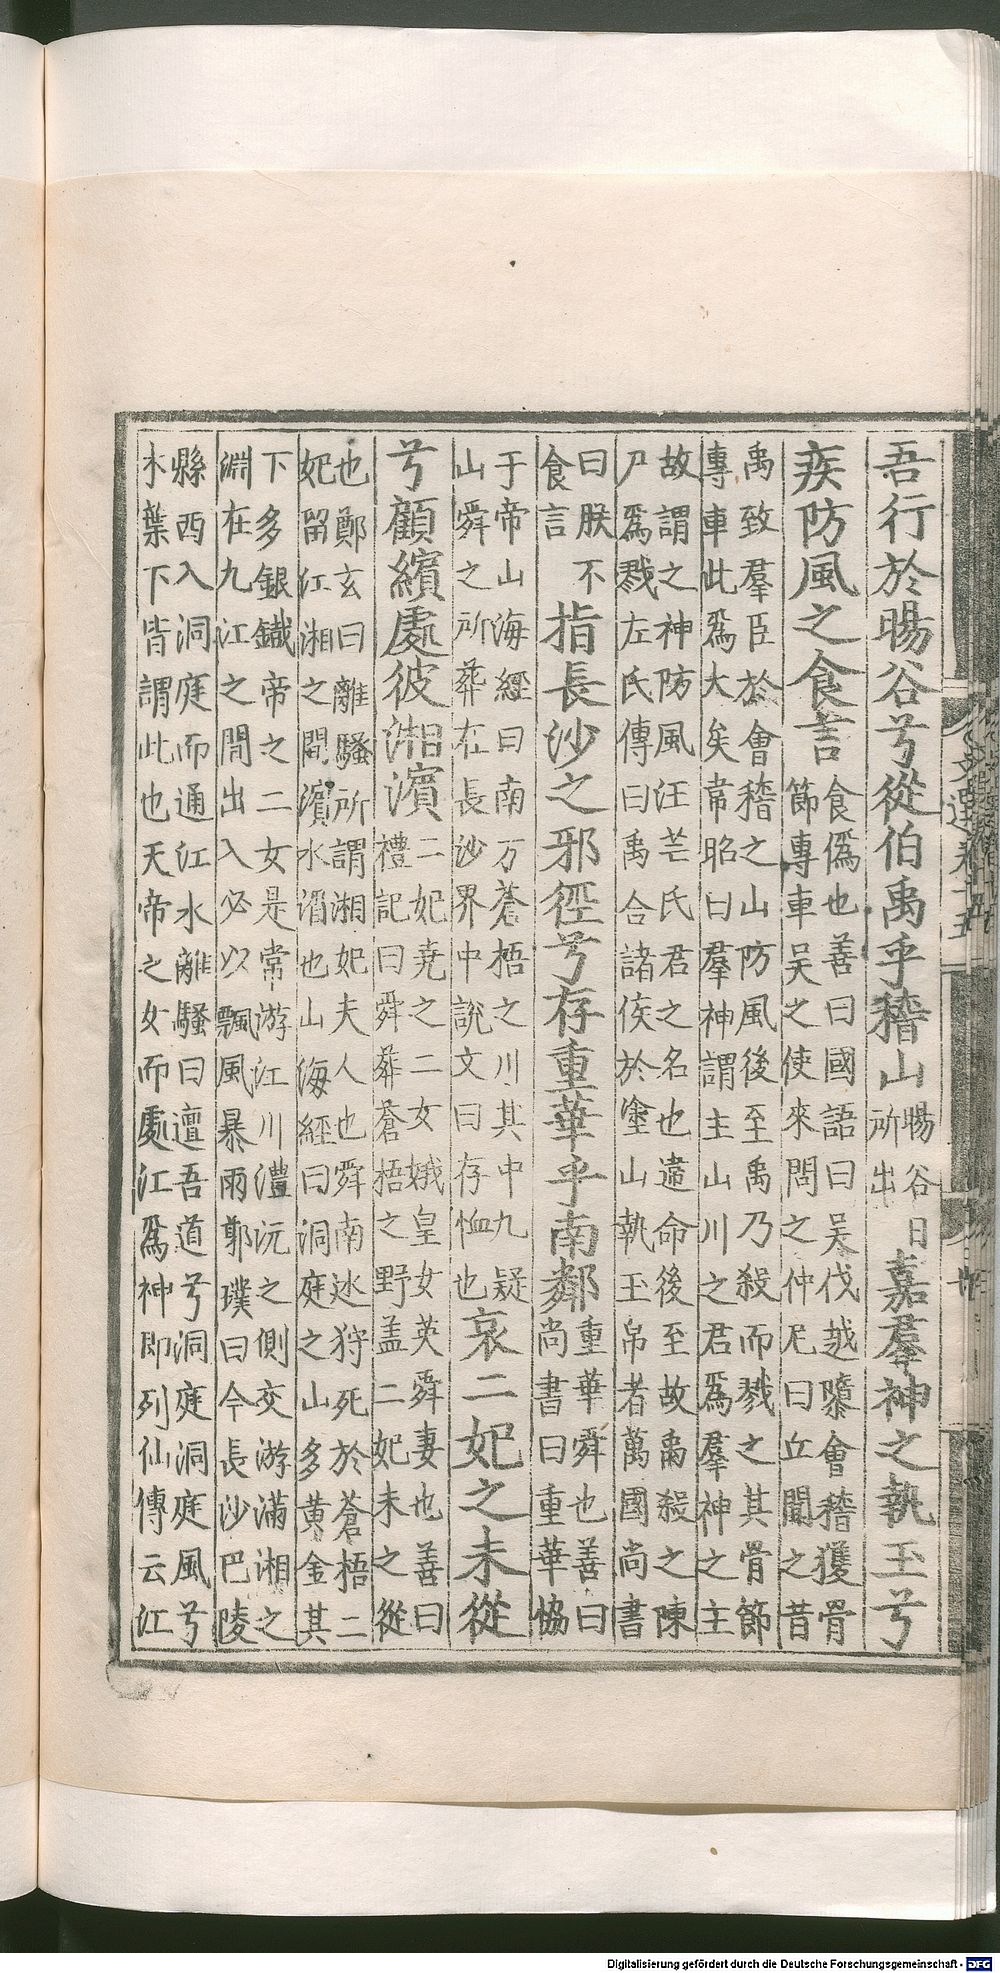 吾行於暘谷兮從伯禹乎稽山
暘谷日
所出
嘉羣神之執玉兮
疾防風之食言
食僞也善曰國語曰吴伐越隳會稽獲骨
節專車吴之使來問之仲尼曰丘聞之昔
禹致羣臣於會稽之山防風後至禹乃殺而戮之其骨節
專車此爲大矣常昭曰羣神謂主山川之君爲羣神之主
故謂之神防風汪芒氏君之名也違命後至故禹殺之陳
尸爲戮左氏傳曰禹合諸侯於塗山執玉帛者萬國尚書
曰朕不
食言
指長沙之邪徑兮存重華乎南鄰
重華舜也善曰
尚書曰重華協
于帝山海經曰南方蒼梧之川其中九疑
山舜之所葬在長沙界中說文曰存恤也
哀二妃之未從
兮顧繽處彼湘濱
二妃堯之二女娥皇女英舜妻也善曰
禮記曰舜葬蒼梧之野盖二妃未之從
也鄭玄曰離騷所謂湘妃夫人也舜南廵狩死於蒼梧二
妃留江湘之間濱水湄也山海經曰洞庭之山多黄金其
下多銀鐡帝之二女是常游江川澧沅之側交游滿湘之
淵在九江之間出入必以飄風暴雨郭璞曰今長沙巴陵
縣西入洞庭而通江水離騷曰邅吾道兮洞庭洞庭風兮
木葉下皆謂此也天帝之女而處江爲神即列仙傳云江
Digitalisierung gefördert durch die Deutsche Forschungsgemeinschaft - DFG